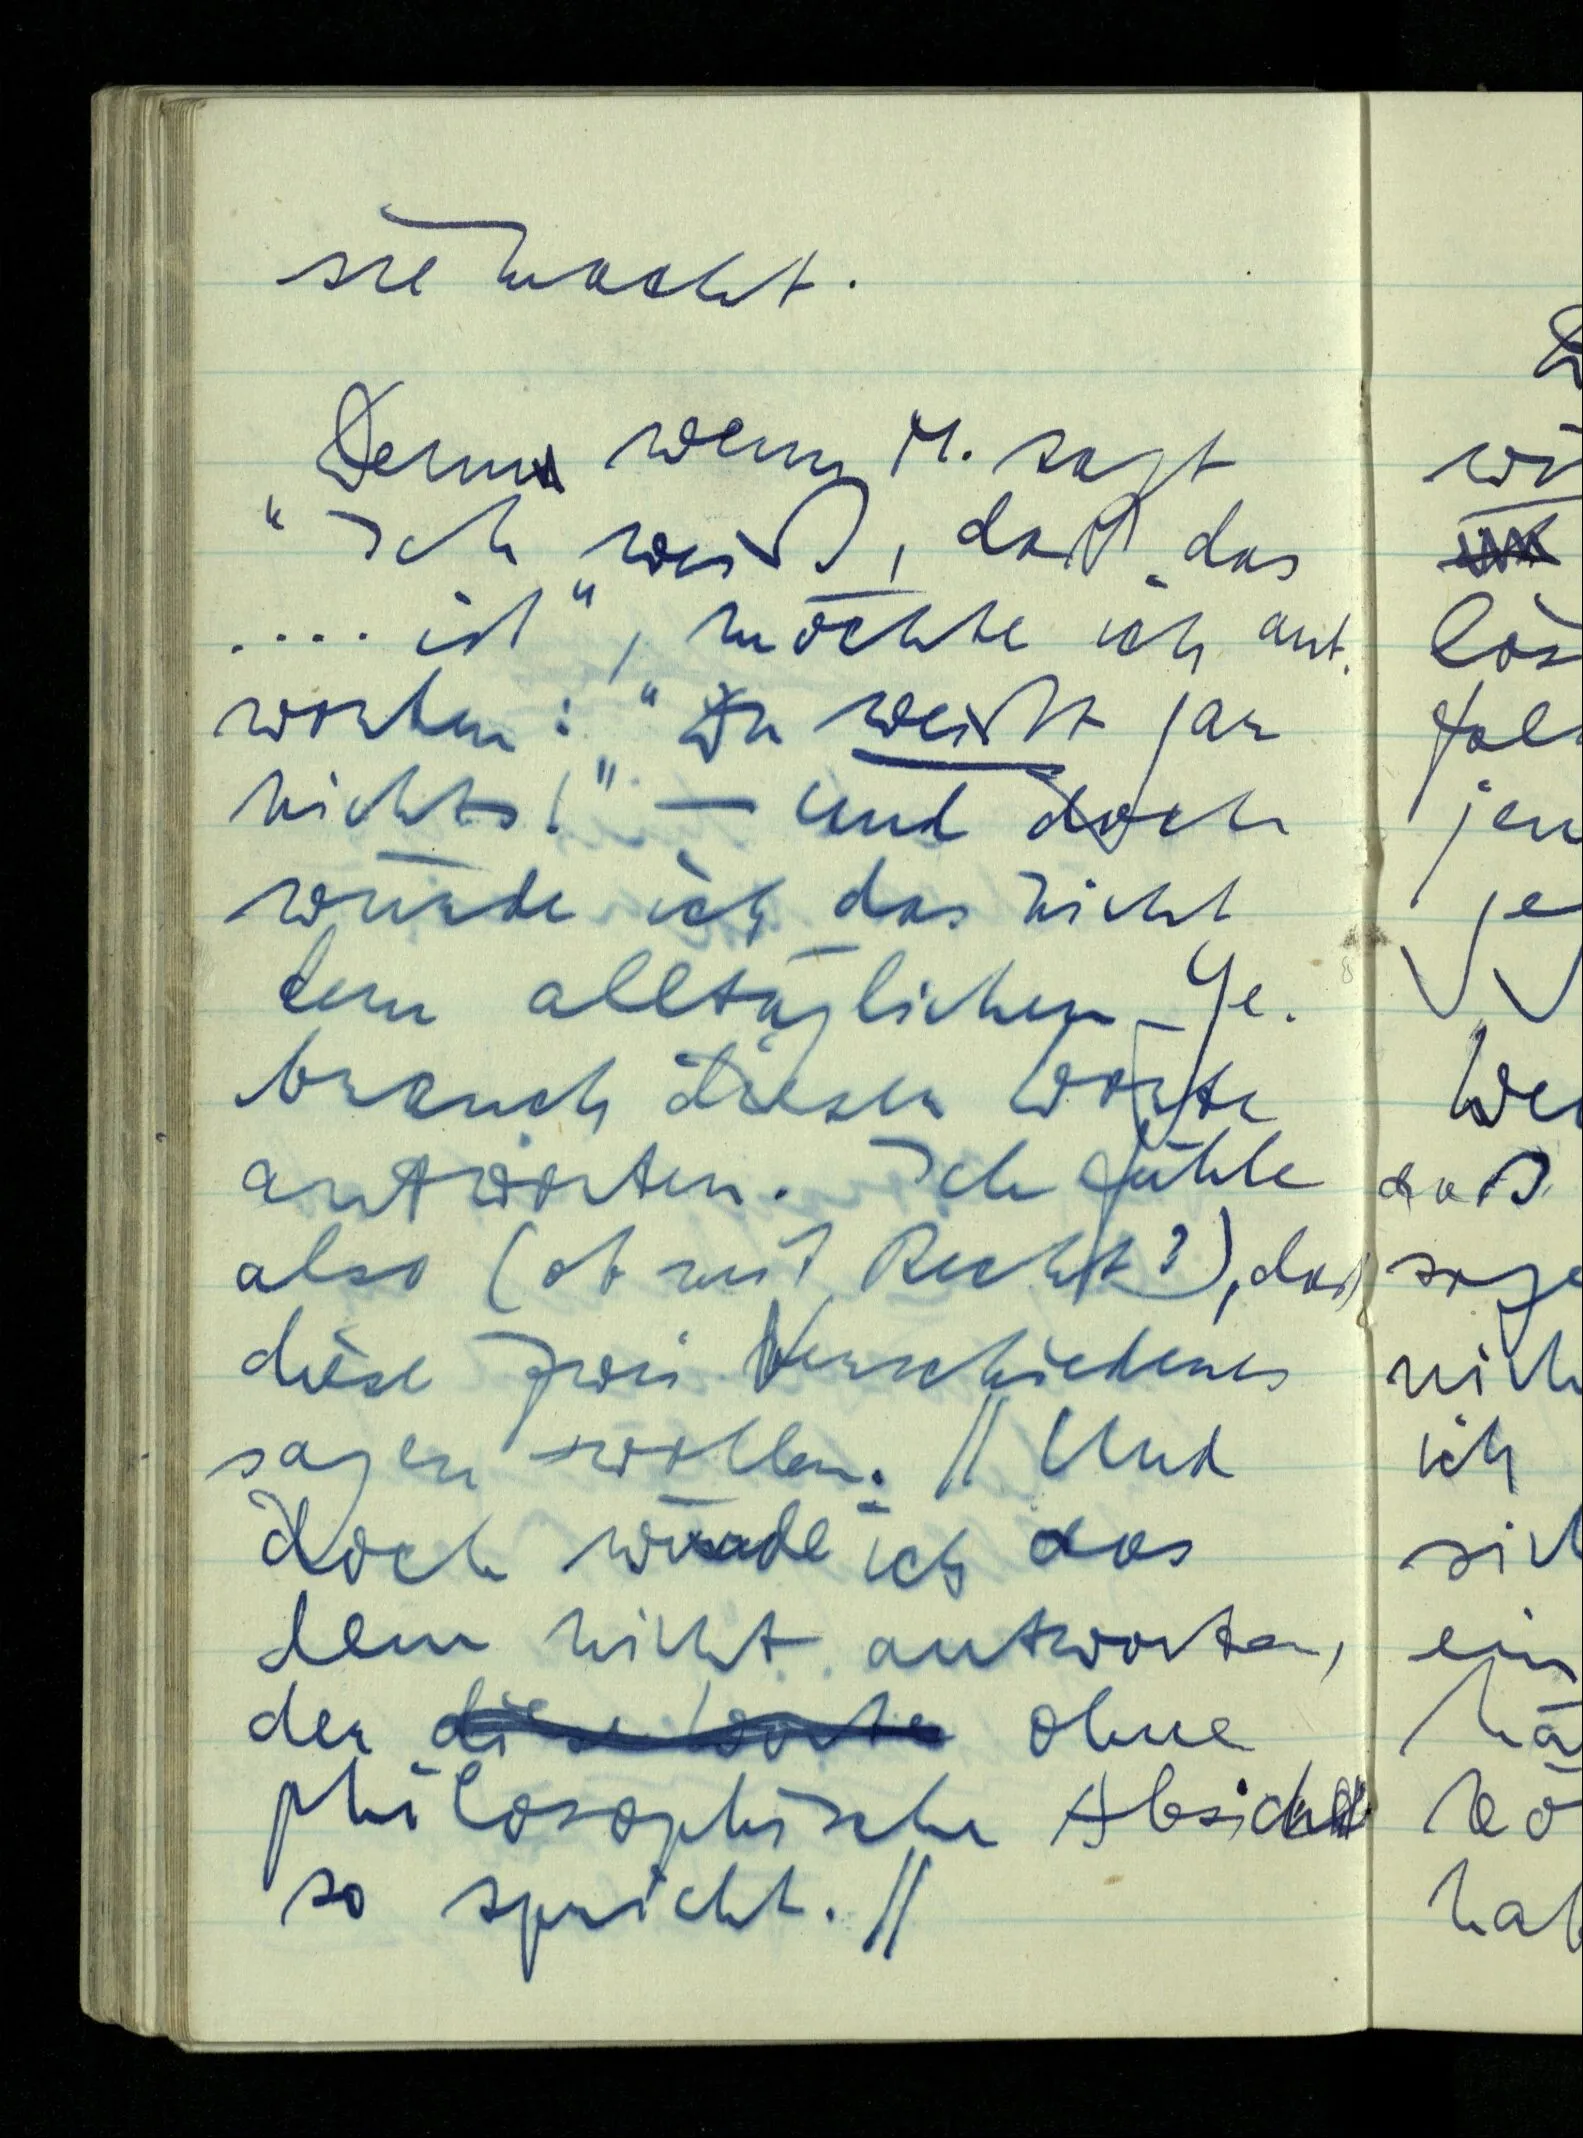 sie macht.
Denn wenn M. sagt
“Ich weiß, daß das
.... ist”, möchte ich ant-
worten: “Du weißt gar
nichts!” — und doch
würde ich das nicht
dem alltäglichen Ge-
brauch dieser Worte
antworten. Ich fühle
also (ob mit Recht?), daß
diese zwei Verschiedenes
sagen wollen. || Und
doch würde ich das
dem nicht antworten,
der diese Worte ohne
philosophische Absicht
so spricht. ||
daß
ich